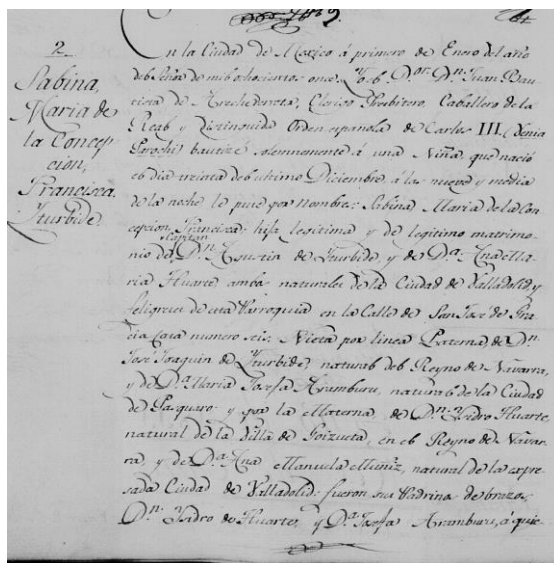 2
Sabina,
Maria de
la Concep
cion,
Francisca.
Yturbide.
En la Ciudad de Mexico á primero de Enero del año
del Señor de mil ochocientos once. Yo el D.or D.n Juan Bau
tista de Arechederreta, Clerigo Presbitero, Caballero de la
Real y Distinguida Orden española de Carlos III. (Venia
Parochi) bautizé solemnemente á una Niña que nació
el dia treinta del ultimo Diciembre á las nueve y media
de la noche le puse por nombre: Sabina Maria de la Con
cepcion, Francisca; hija lexitima y de legitimo matrimo
nio del Capitan D.n Agustin de Yturbide, y de D.a Ana Ma
ria Huarte ambos naturales de la Ciudad de Valladolid, y
feligreses de esta Parroquia en la Calle de San José de Gra
cia Casa numero seis. Nieta por linea Paterna, de D.n
José Joaquin de Yturbide, natural del Reyno de Navarra,
y de D.a Maria Josefa Aramburu, natural de la Ciudad
de Pasquaro y por la Materna, de D.n Ysidro Huarte,
natural de la Villa de Goizueta, en el Reyno de Navar
ra, y de D.a Ana Manuela Muñiz, natural de la expre
sada Ciudad de Valladolid: fueron sus Padrinos de brazos,
D.n Ysidro de Huarte, y D.a Josefa Aramburu, á quie